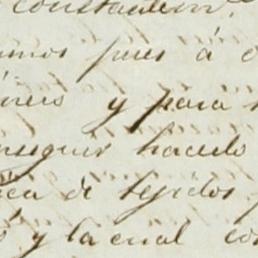 constantem.
amos pues á
y para
nseguir hacerlo
ica de tejidos
y la cual con